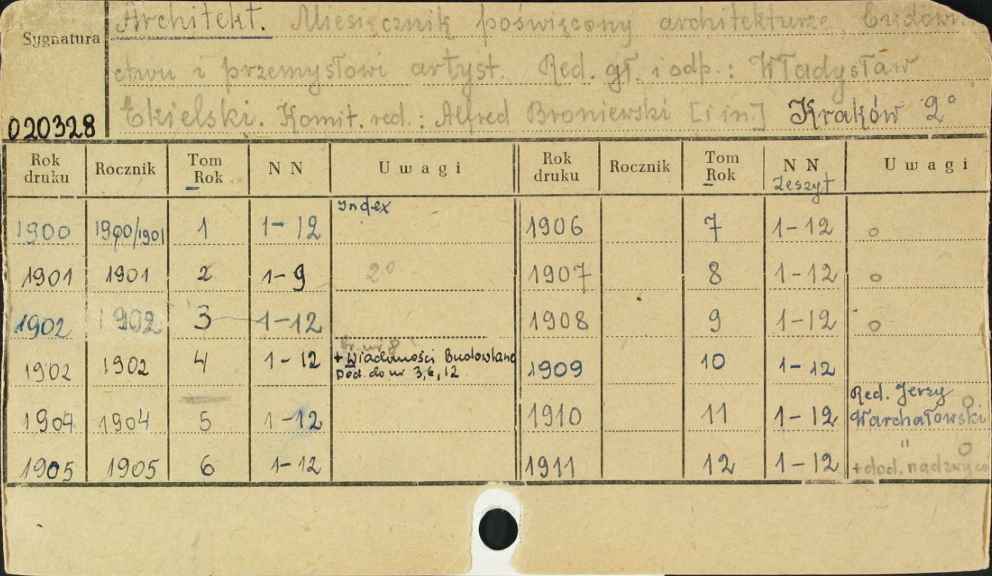 Sygnatura
Architekt. Miesięcznik poświęcony architekturze, budow.
ctwu i przemysłowi artyst. Red. gł. i odp.: Władysław
020328
Ekielski. Komit. red.: Alfred Broniewski [i in.] Kraków 2°
Rok druku Rocznik Tom Rok N N Uwagi Rok druku Rocznik Tom Rok N N Zeszyt Uwagi
Index
1900 1900/1901 1 1-12 1906 7 1-12 o
1901 1901 2 1-9 2° 1907 8 1-12 o
1902 1902 3 1-12 1908 9 1-12 o
1902 1902 4 1-12 + Wiadomości Budowlane 1909 10 1-12
Dod. do nr 3, 6, 12
1904 1904 5 1-12 1910 11 1-12 Red. Jerzy o
Warchałowski
1905 1905 6 1-12 1911 12 1-12 " o
+ dod. nadzwycz